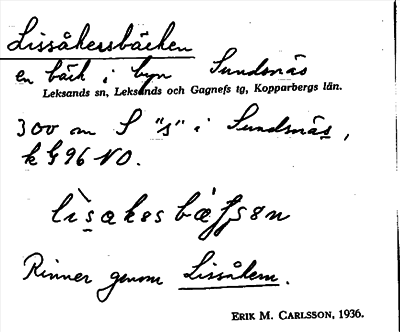 Lissåkersbäcken
en bäck i byn Sundsnäs
Leksands sn, Leksands och Gagnefs tg, Kopparbergs län.
300 m S "s" i Sundsnäs,
k G96 NO.
Rinner genom Lissåkern.
ERIK M. CARLSSON, 1936.